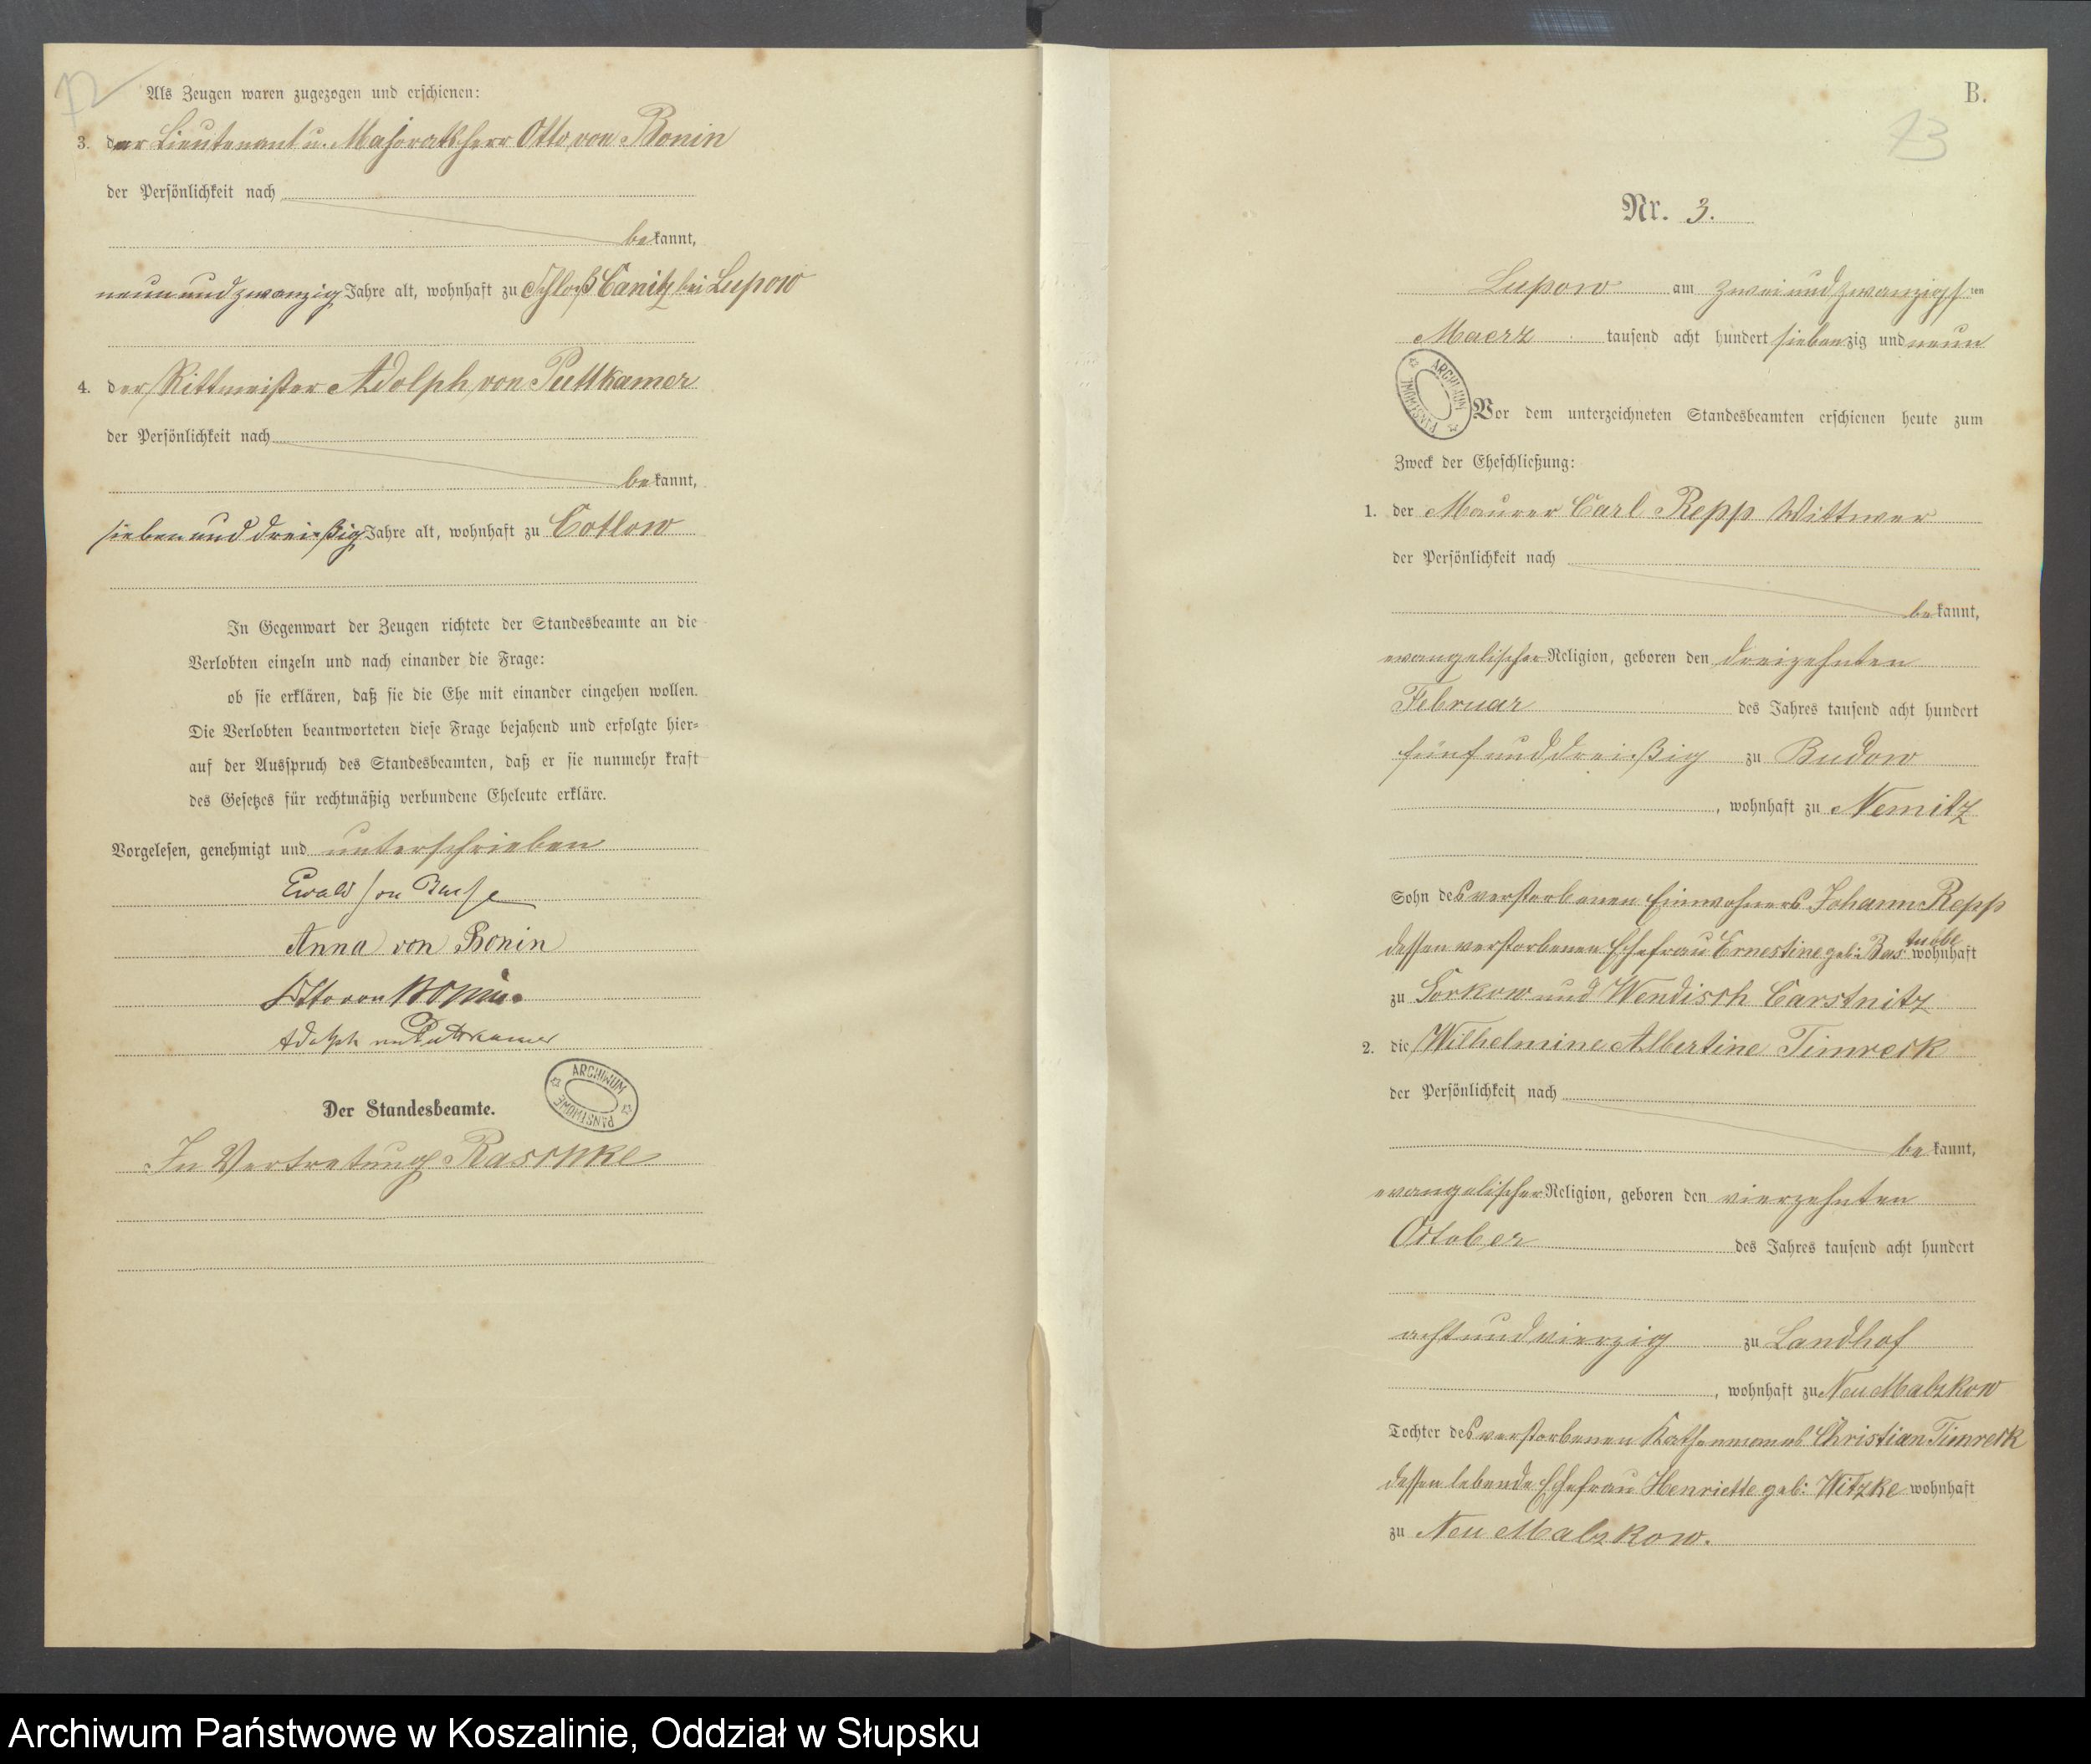 72
Als Zeugen waren zugezogen und erschienen:
3. der Lieutenant u. Majoratsherr Otto von Bonin
der Persönlichkeit nach
bekannt,
neun und zwanzig Jahre alt, wohnhaft zu Schloß Canitz bei Lupow
4. der Rittmeister Adolph von Puttkamer
der Persönlichkeit nach
bekannt,
sieben und dreißig Jahre alt, wohnhaft zu Cotlow
In Gegenwart der Zeugen richtete der Standesbeamte an die
Verlobten einzeln und nach einander die Frage:
ob sie erklären, daß sie die Ehe mit einander eingehen wollen.
Die Verlobten beantworteten diese Frage bejahend und erfolgte hier-
auf der Ausspruch des Standesbeamten, daß er sie nunmehr kraft
des Gesetzes für rechtmäßig verbundene Eheleute erkläre.
Vorgelesen, genehmigt und unterschrieben
Ewald von
Anna von Bonin
Otto von Bonin
Adolph von Puttkamer
ARCHIWUM PAŃSTWOWE
Der Standesbeamte.
In Vertretung Raschke
B.
73
Nr. 3.
Lupow am zwei und zwanzigsten
Maerz tausend acht hundert siebenzig und neun
ARCHIWUM PAŃSTWOWE
Vor dem unterzeichneten Standesbeamten erschienen heute zum
Zweck der Eheschließung:
1. der Maurer Carl Repp Wittwer
der Persönlichkeit nach
bekannt,
evangelischer Religion, geboren den dreizehnten
Februar des Jahres tausend acht hundert
fünf und dreißig zu Budow
, wohnhaft zu Nemitz
Sohn des verstorbenen Einwohners Johann Repp
dessen verstorbenen Ehefrau Ernestine geb: Bastubbe wohnhaft
zu Gorkow und Wendisch Carstnitz
2. die Wilhelmine Albertine Timreck
der Persönlichkeit nach
bekannt,
evangelischer Religion, geboren den vierzehnten
October des Jahres tausend acht hundert
acht und vierzig zu Landhof
, wohnhaft zu Neu Malzkow
Tochter des verstorbenen Kathenmanns Christian Timreck
dessen lebende Ehefrau Henriette geb: Witzke wohnhaft
zu Neu Malzkow.
Archiwum Państwowe w Koszalinie, Oddział w Słupsku